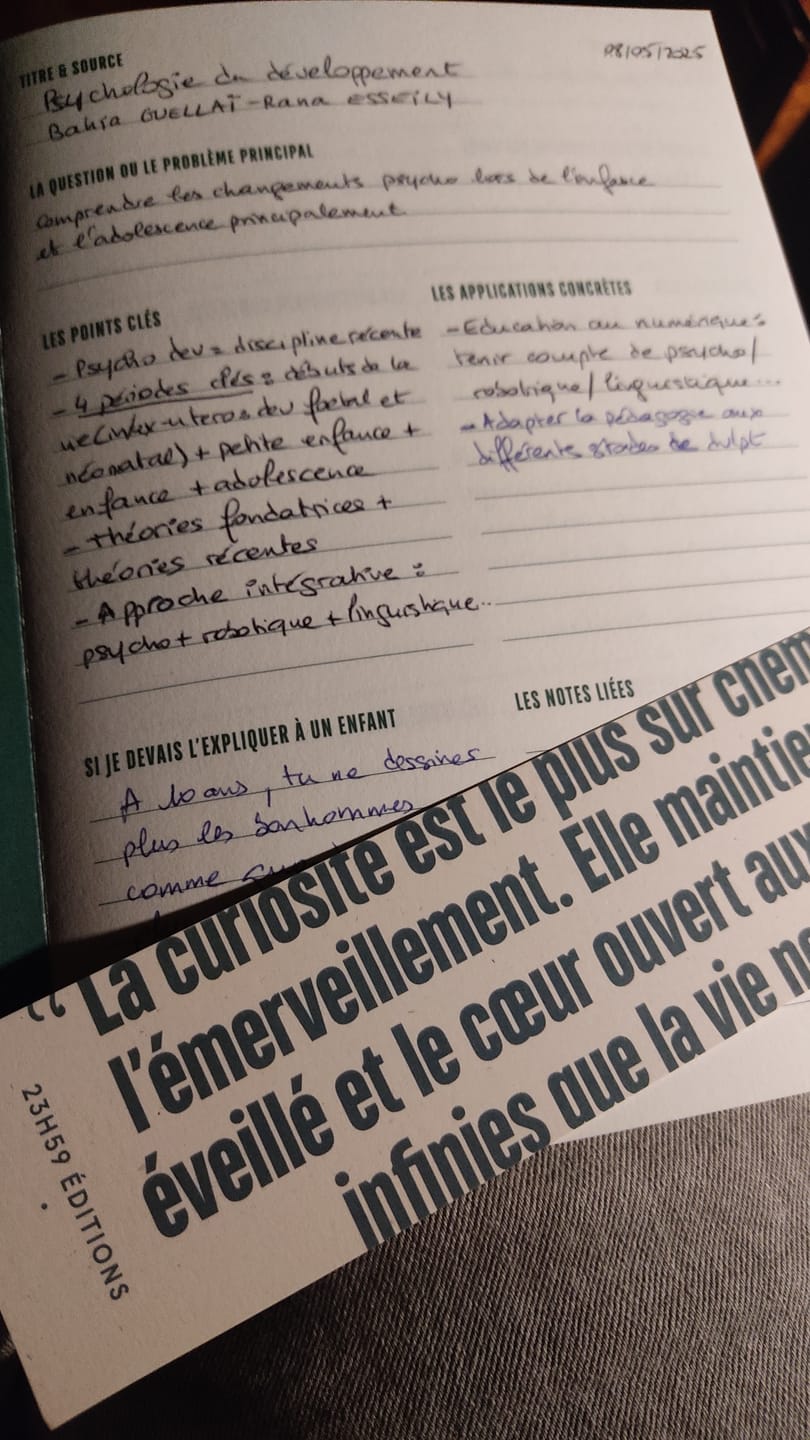 TITRE & SOURCE
08/05/2025
Psychologie du développement
Bahia GUELLAÏ - Rana ESSEILY
LA QUESTION OU LE PROBLÈME PRINCIPAL
comprendre les changements psycho lors de l'enfance
et l'adolescence principalement
LES POINTS CLÉS
- Psycho dev = discipline récente
- 4 périodes clés : débuts de la
vie (vie in-utero = dev foetal et
néonatal) + petite enfance +
enfance + adolescence
- théories fondatrices +
théories récentes
- Approche intégrative :
psycho + robotique + linguistique...
LES APPLICATIONS CONCRÈTES
- Education au numérique :
tenir compte de psycho/
robotique/linguistique...
- Adapter la pédagogie aux
différents stades de dvlpt
SI JE DEVAIS L'EXPLIQUER À UN ENFANT
A 10 ans, tu ne dessines
plus les bonhommes
comme
LES NOTES LIÉES
“ La curiosité est le plus sur chem
l'émerveillement. Elle maintie
éveillé et le cœur ouvert aux
infinies que la vie
23H59 ÉDITIONS